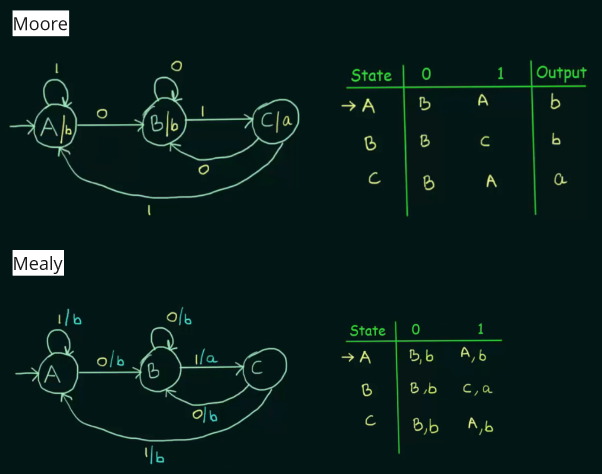 Moore
1
0
A/b
0
B/b
1
C/a
0
1
State 0 1 Output
→A B A b
B B C b
C B A a
Mealy
1/b
0/b
A
0/b
B
1/a
C
0/b
1/b
State 0 1
→A B,b A,b
B B,b C,a
C B,b A,b